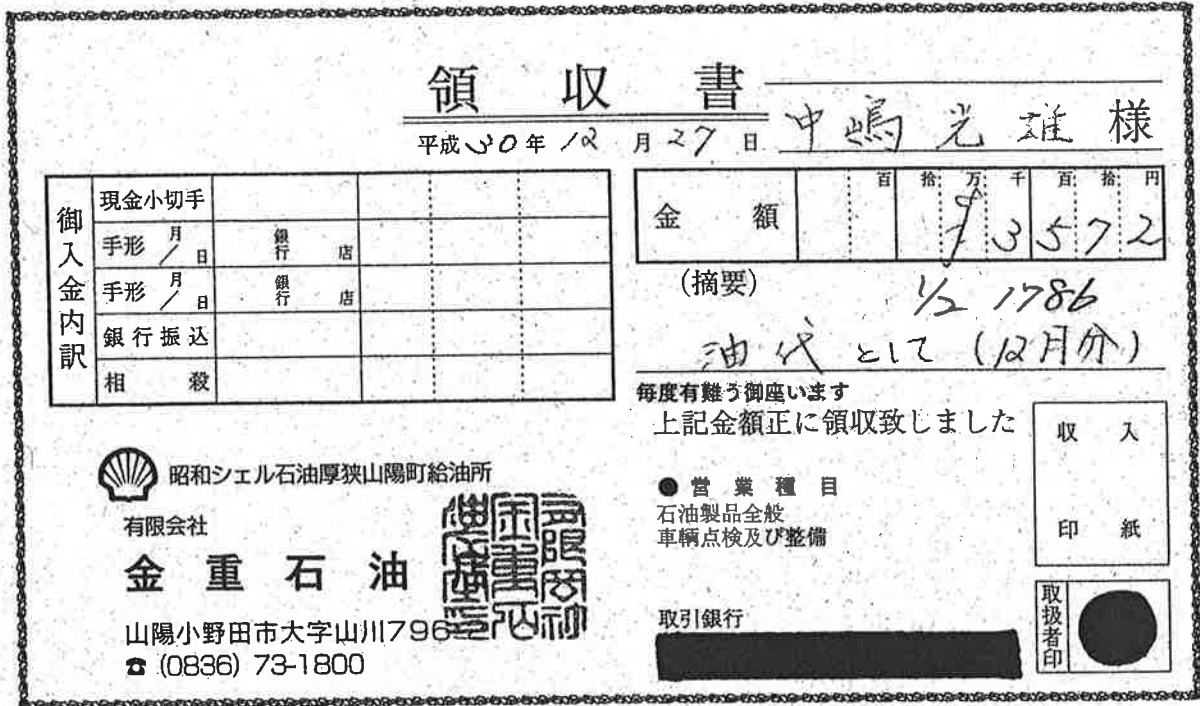 領収書
平成30年12月27日
中嶋光雄様
御入金内訳
現金小切手
手形 月/日 銀行 店
手形 月/日 銀行 店
銀行振込
相殺
金額 百拾万千百拾円
¥3572
(摘要)
1/2 1786
油代として(12月分)
毎度有難う御座います
上記金額正に領収致しました
収入
印紙
昭和シェル石油厚狭山陽町給油所
有限会社
金重石油店
山陽小野田市大字山川796-2
☎ (0836) 73-1800
●営業種目
石油製品全般
車輌点検及び整備
取引銀行
取扱者印